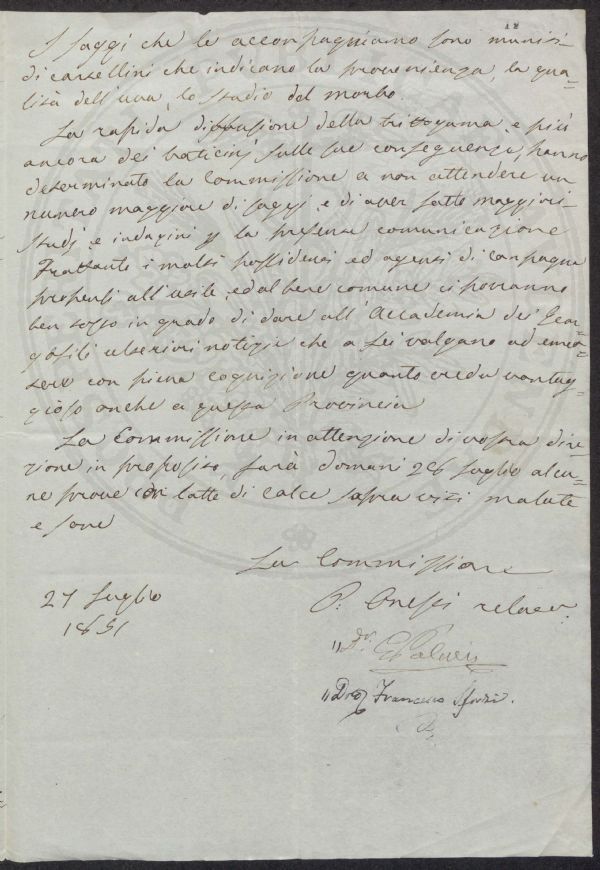 18
I saggi che le accompagniamo sono muniti
di cartellini che indicano la provenienza, la qua=
lità dell'uva, lo stadio del morbo.
La rapida diffusione della crittogama e più
ancora dei vaticinj sulle sue conseguenze, hanno
determinato la Commissione a non attendere un
numero maggiore di saggi e di aver fatto maggiori
studj e indagini p la presente comunicazione
Frattanto i molti possidenti ed agenti di campagna
proponti all'utile, ed al bene comune ci porranno
ben tosto in grado di dare all'Accademia dei Geor=
gofili ulteriori notizie che a lei valgano ad
con piena cognizione quanto creda vantag=
gioso anche a questa Provincia
La Commissione in attenzione di vostra dire=
zione in proposito, farà domani 28 luglio alcu=
ne prove con latte di calce sopra viti malate
e sane
La Commissione
27 Luglio
1851
P. Onesti relatr.
" Dr.
" Dre Francesco Sforzi.